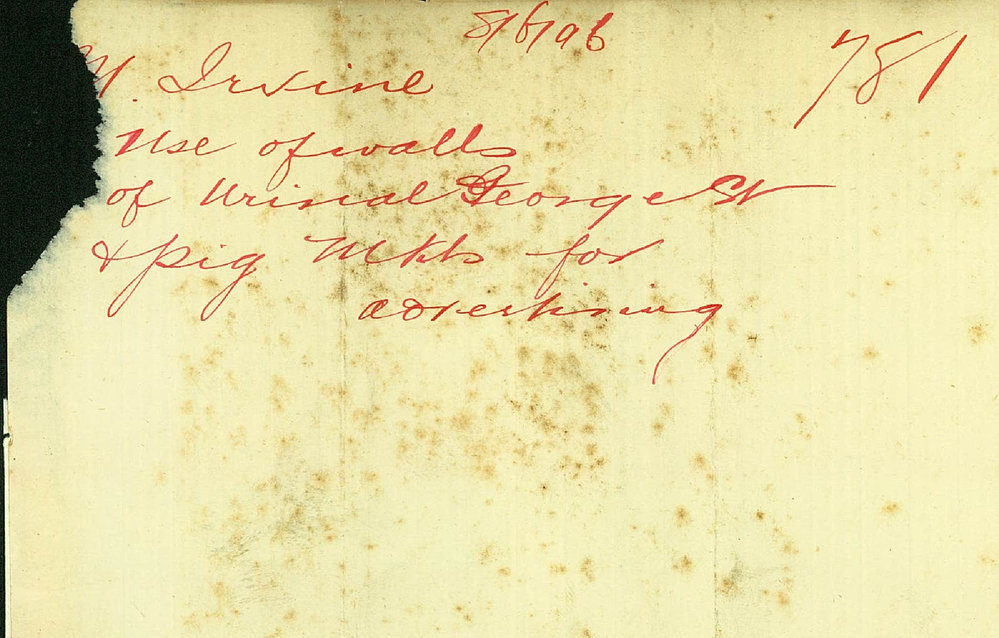 8/6/96
781
Y. Irvine
Use of walls
of Urinal George St
& pig Mkts for
advertising